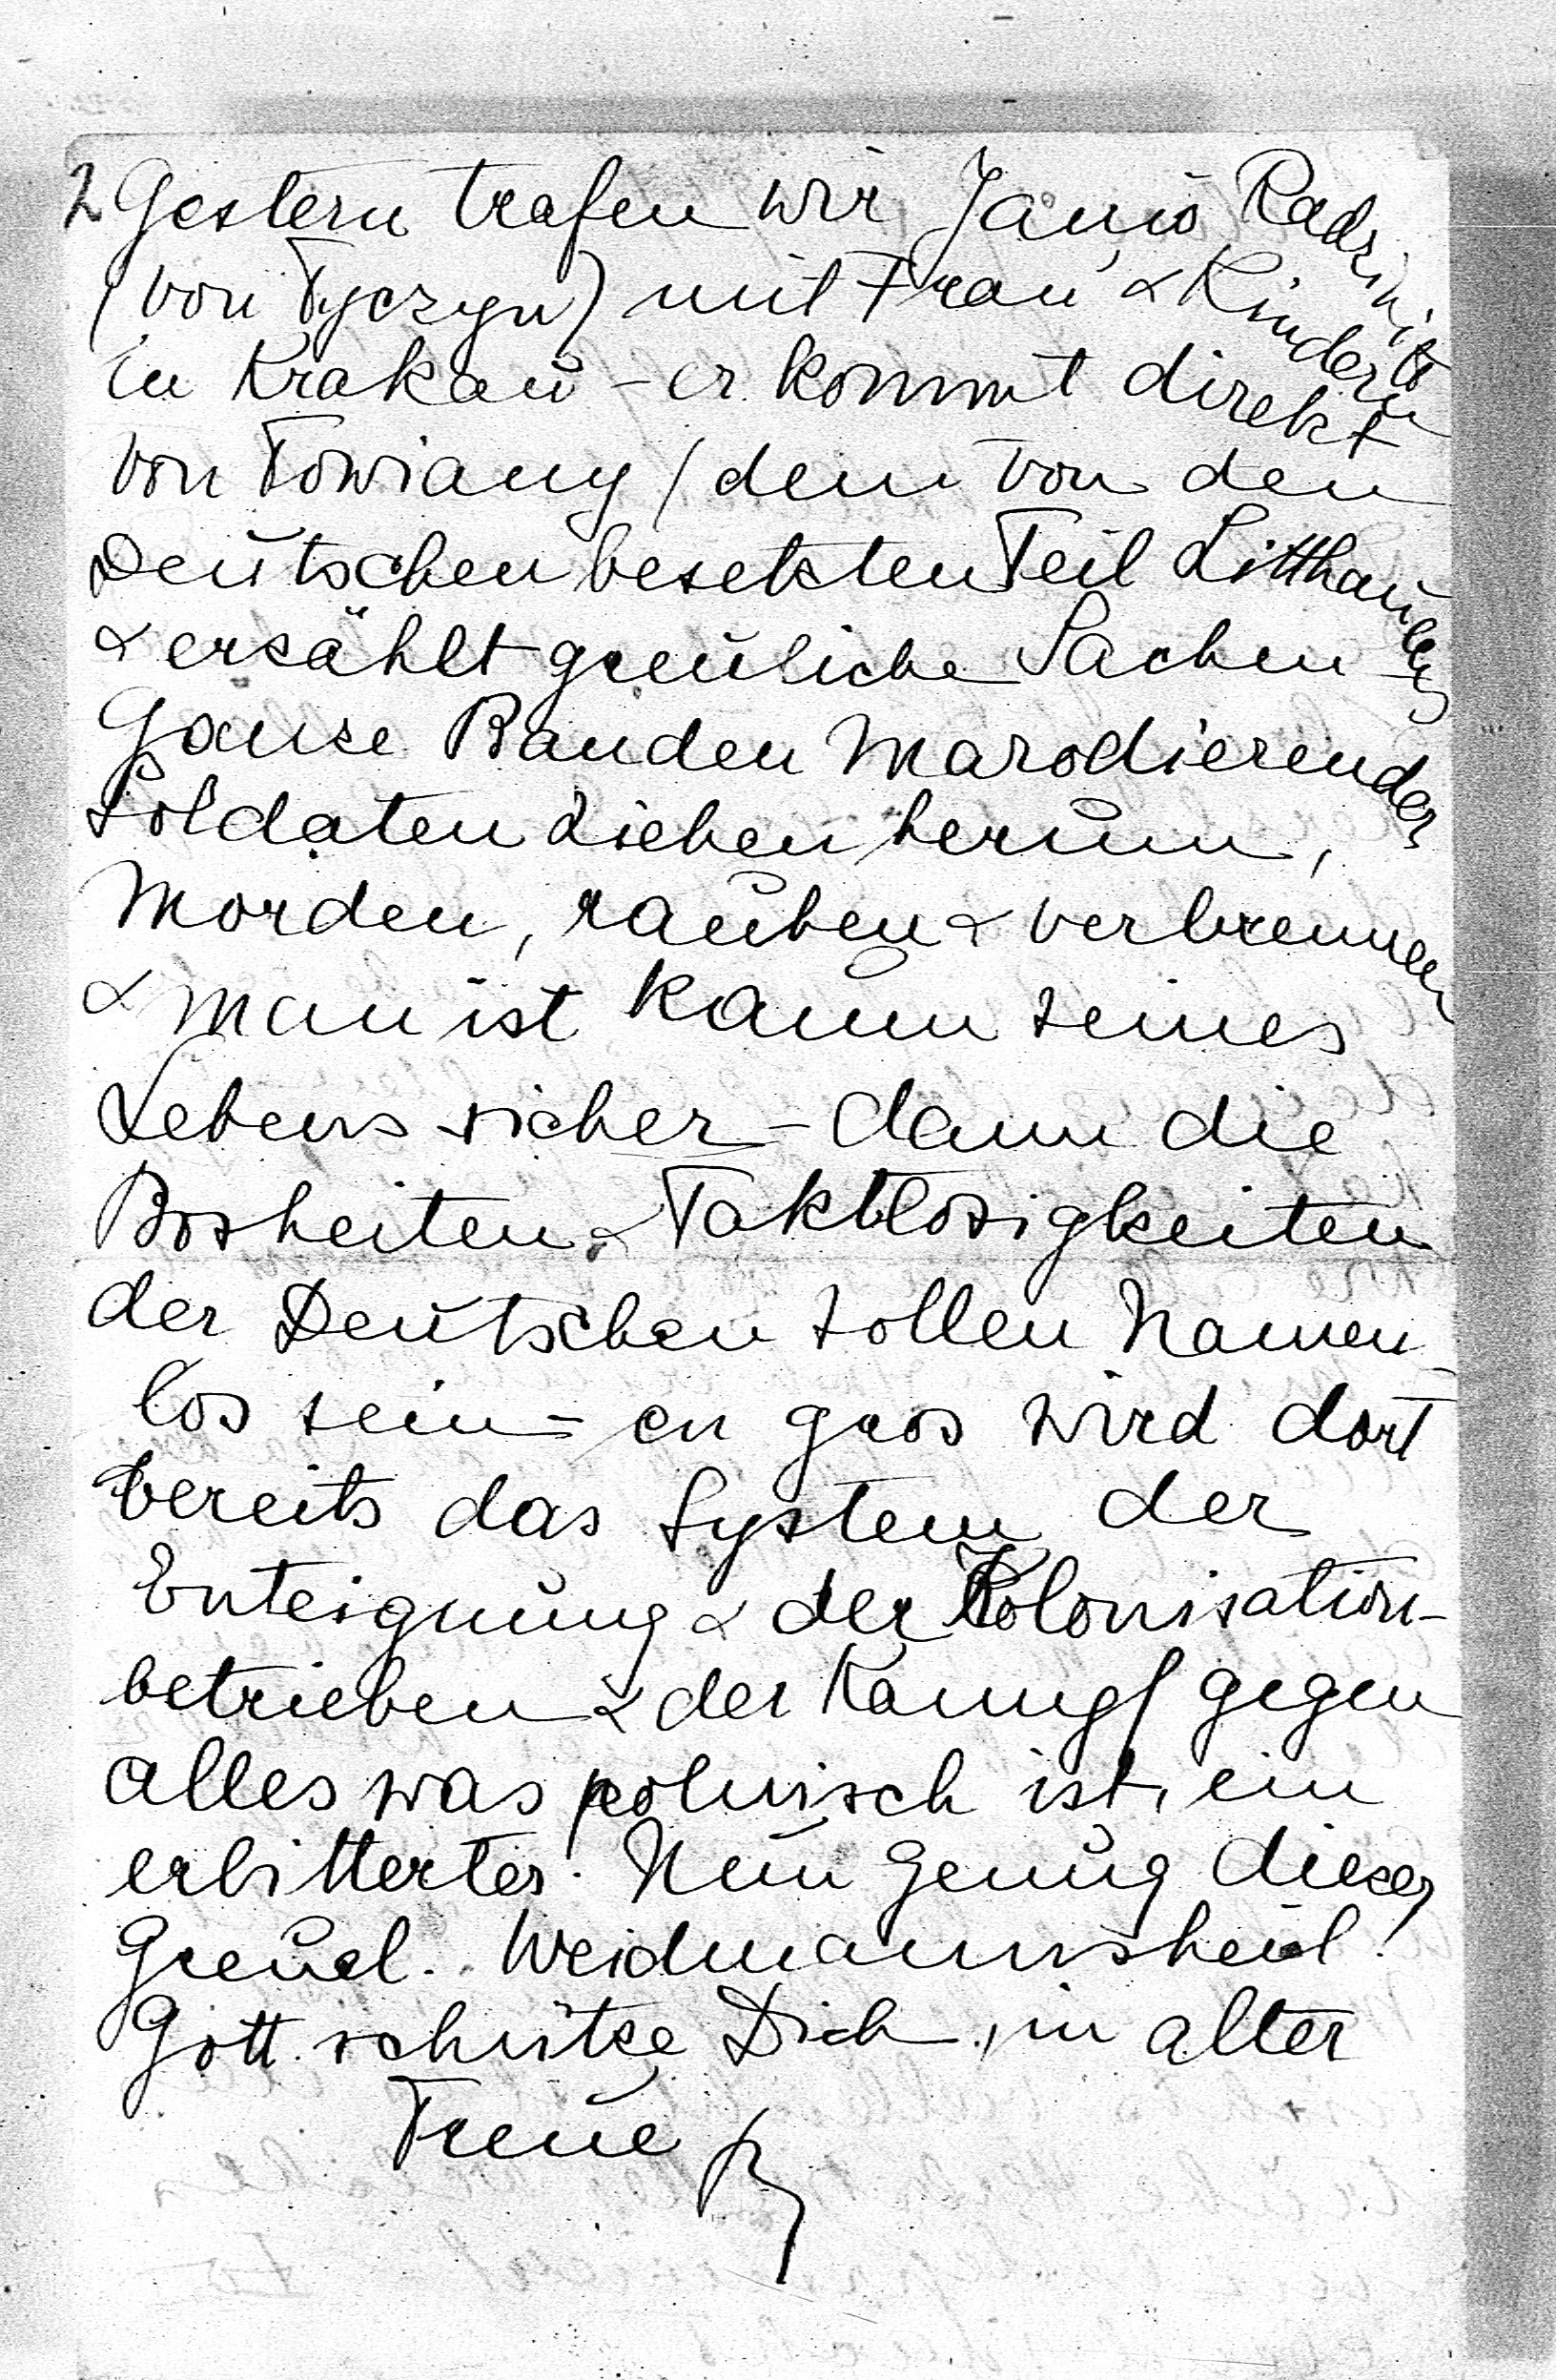 2 Gestern trafen wir Janio Radziwill
(von Tyczyn) mit Frau & Kindern
in Krakau - er kommt direkt
von Towiany / dem von den
Deutschen besetzten Teil Litthauens
& erzählt greuliche Sachen -
Ganze Banden Marodierender
Soldaten ziehen herum,
Morden, rauben & verbrennen
& Man ist kaum seines
Lebens sicher - dann die
Bosheiten & Taktlosigkeiten
der Deutschen sollen Namen-
los sein - en gros wird dort
bereits das System der
Enteignung & der Kolonisation-
betrieben & der Kampf gegen
alles was polnisch ist, ein
erbitterter. Nun genug dieser
Greuel. Weidmannsheil!
Gott schütze Dich, in alter
Treue